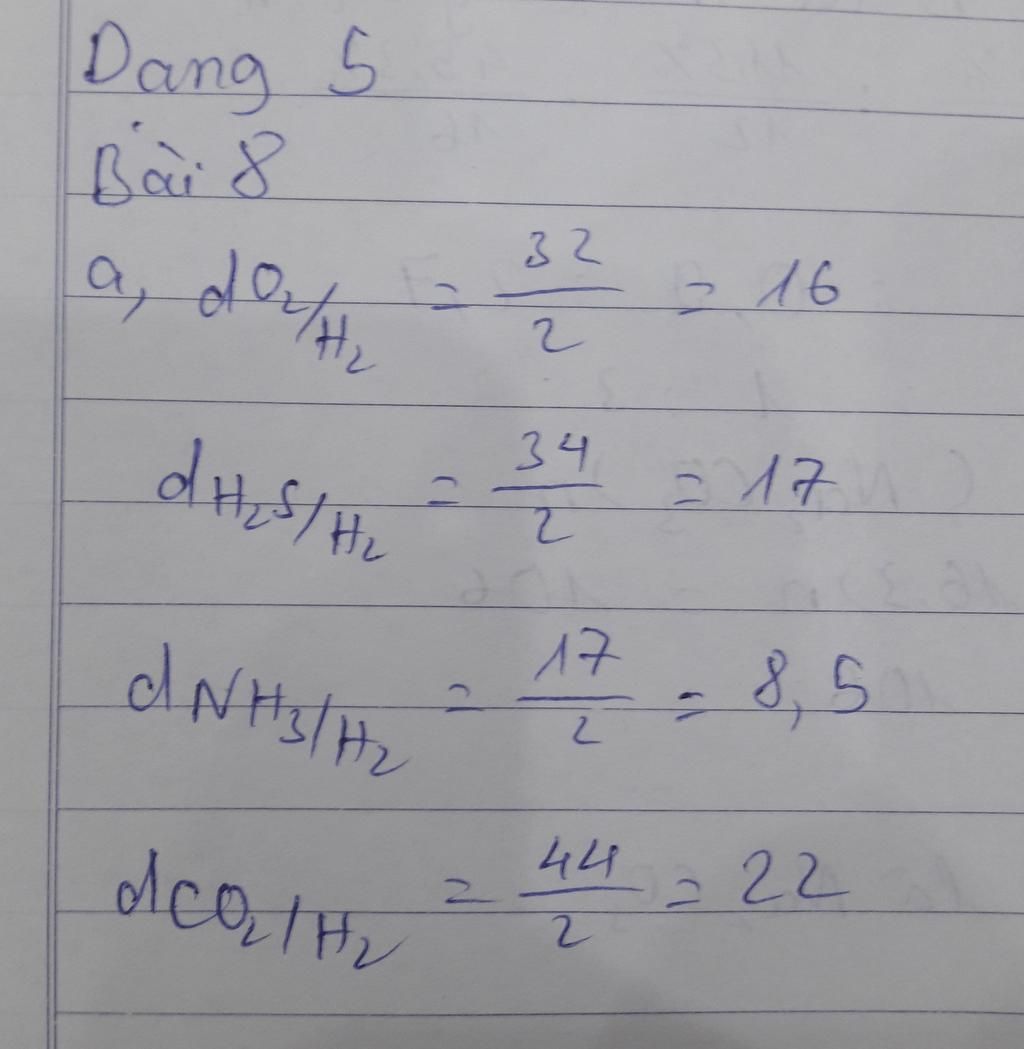 Dạng 5
Bài 8
a, dO₂/H₂ = 32/2 = 16
dH₂S/H₂ = 34/2 = 17
dNH₃/H₂ = 17/2 = 8,5
dCO₂/H₂ = 44/2 = 22